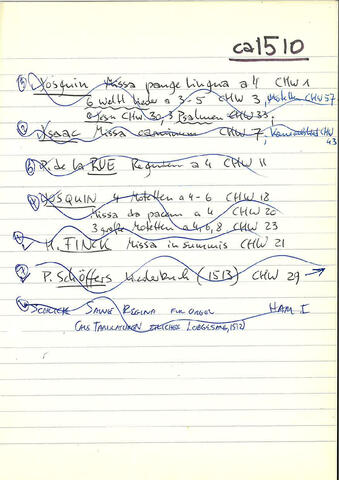 ca 1510
① Josquin Missa pange lingua a 4 CHW 1
6 weltl Lieder a 3-5 CHW 3, Motetten CHW 57
CHW 30, 3 Psalmen CHW 33.
② Isaac Missa carminum CHW 7, CHW 43
P. de la RUE Requiem a 4 CHW 11
JOSQUIN 4 Motetten a 4-6 CHW 18
Missa da pacem a 4 CHW 20
3 große Motetten a 4, 6, 8 CHW 23
H. FINCK Missa in summis CHW 21
P. Schöffers Liederbuch (1513) CHW 29 →
SCHLICK SALVE REGINA FÜR ORGEL HAM I
(AUS TABULATUREN ETLICHER LOBGESANG, 1512)